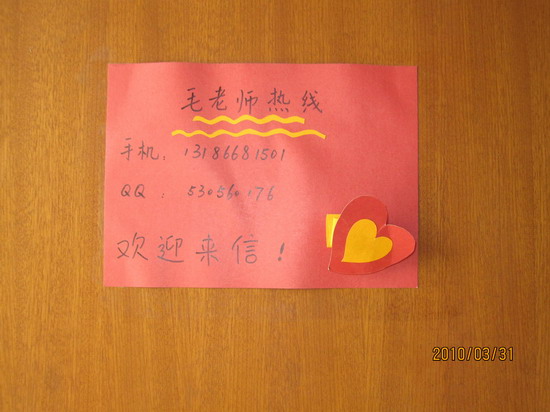 毛老师热线
手机：13186681501
QQ：530560176
欢迎来信！
2010/03/31